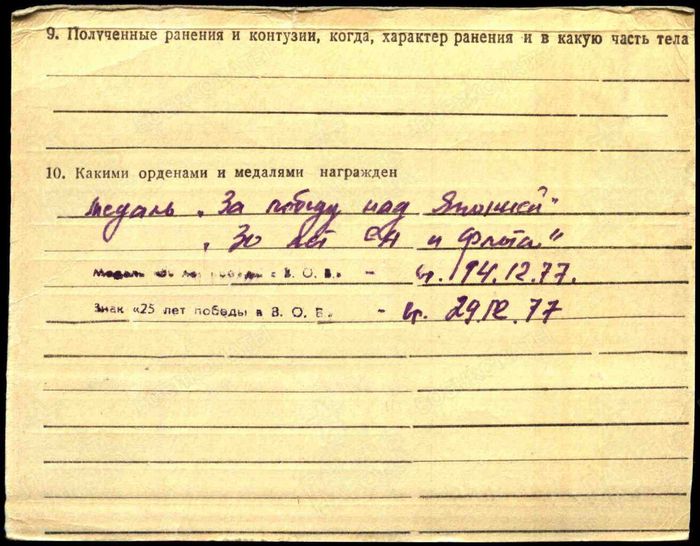 9. Полученные ранения и контузии, когда, характер ранения и в какую часть тела
10. Какими орденами и медалями награжден
медаль „За победу над Японией“
„30 лет СА и флота“
Медаль «30 лет победы в В. О. В.» - вр. 14.12.77.
Знак «25 лет победы в В. О. В.» - вр. 29.12.77